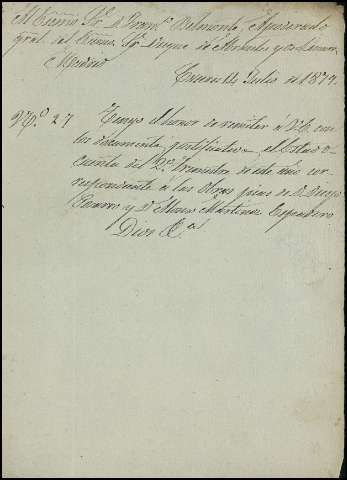 Al Excmo. Sr. D. Franco. Belmonte, Apoderado
gral. del Excmo. Sr. Duque de Abrantes y de Linares
Madrid
Cáceres 14 Julio de 1879.
N.º 27 Tengo el honor de remitir á V.E. con
los documentos justificativos el Estado ó
cuenta del 2.º trimestre de este año cor-
respondiente á las obras pias de D. Diego
y D. Martinez Espadero
Dios &.ª